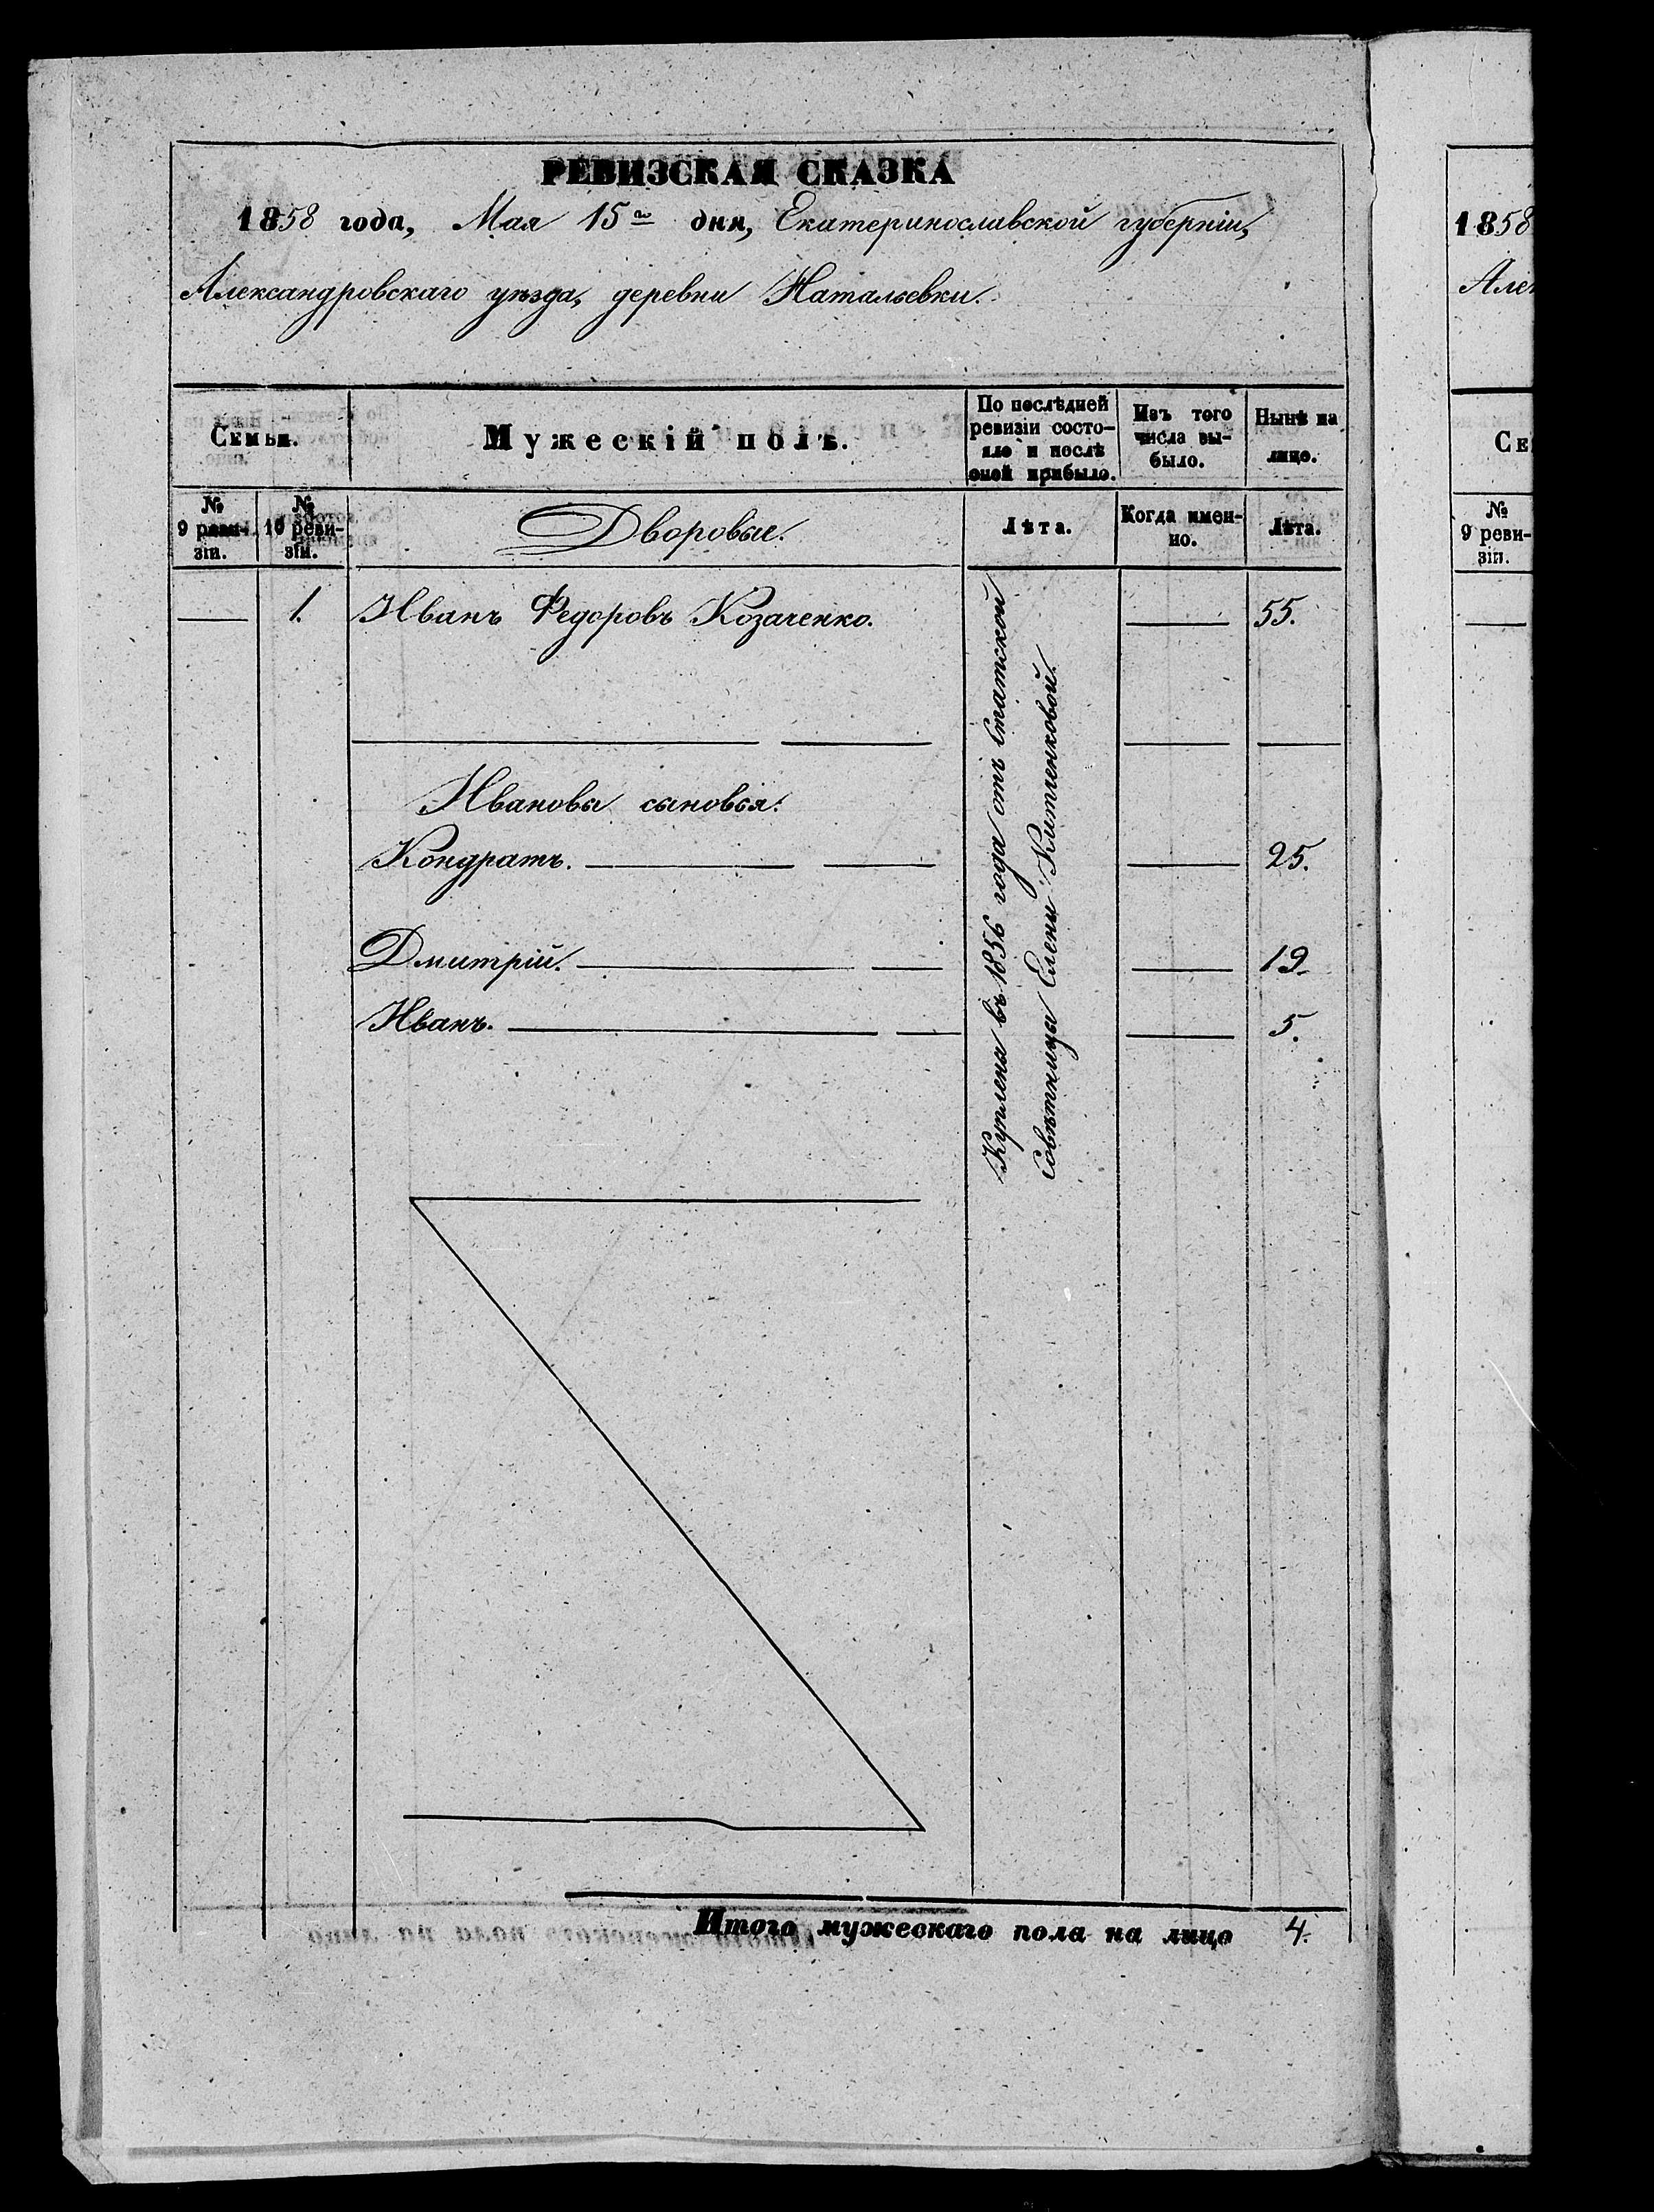 РЕВИЗСКАЯ СКАЗКА
1858 года, Мая 15го дня, Екатеринославской губерніи,
Александровскаго уѣзда, деревни Натальевки.
Семьи.
Мужескій полъ.
По послѣдней
ревизіи состо-
яло и послѣ
оной прибыло.
Изъ того
числа вы-
было.
Нынѣ на
лицо.
№
9 реви-
зіи.
№
10 реви-
зіи.
Дворовые.
Лѣта.
Когда имен-
но.
Лѣта.
1. Иванъ Федоровъ Козаченко. 55.
Ивановы сыновья:
Кондратъ. 25.
Дмитрій. 19.
Иванъ. 5.
Куплены въ 1856 года отъ Статской
Совѣтницы Елены
Итого мужескаго пола на лицо 4.
1858
Але
Се
№
9 реви-
зіи.